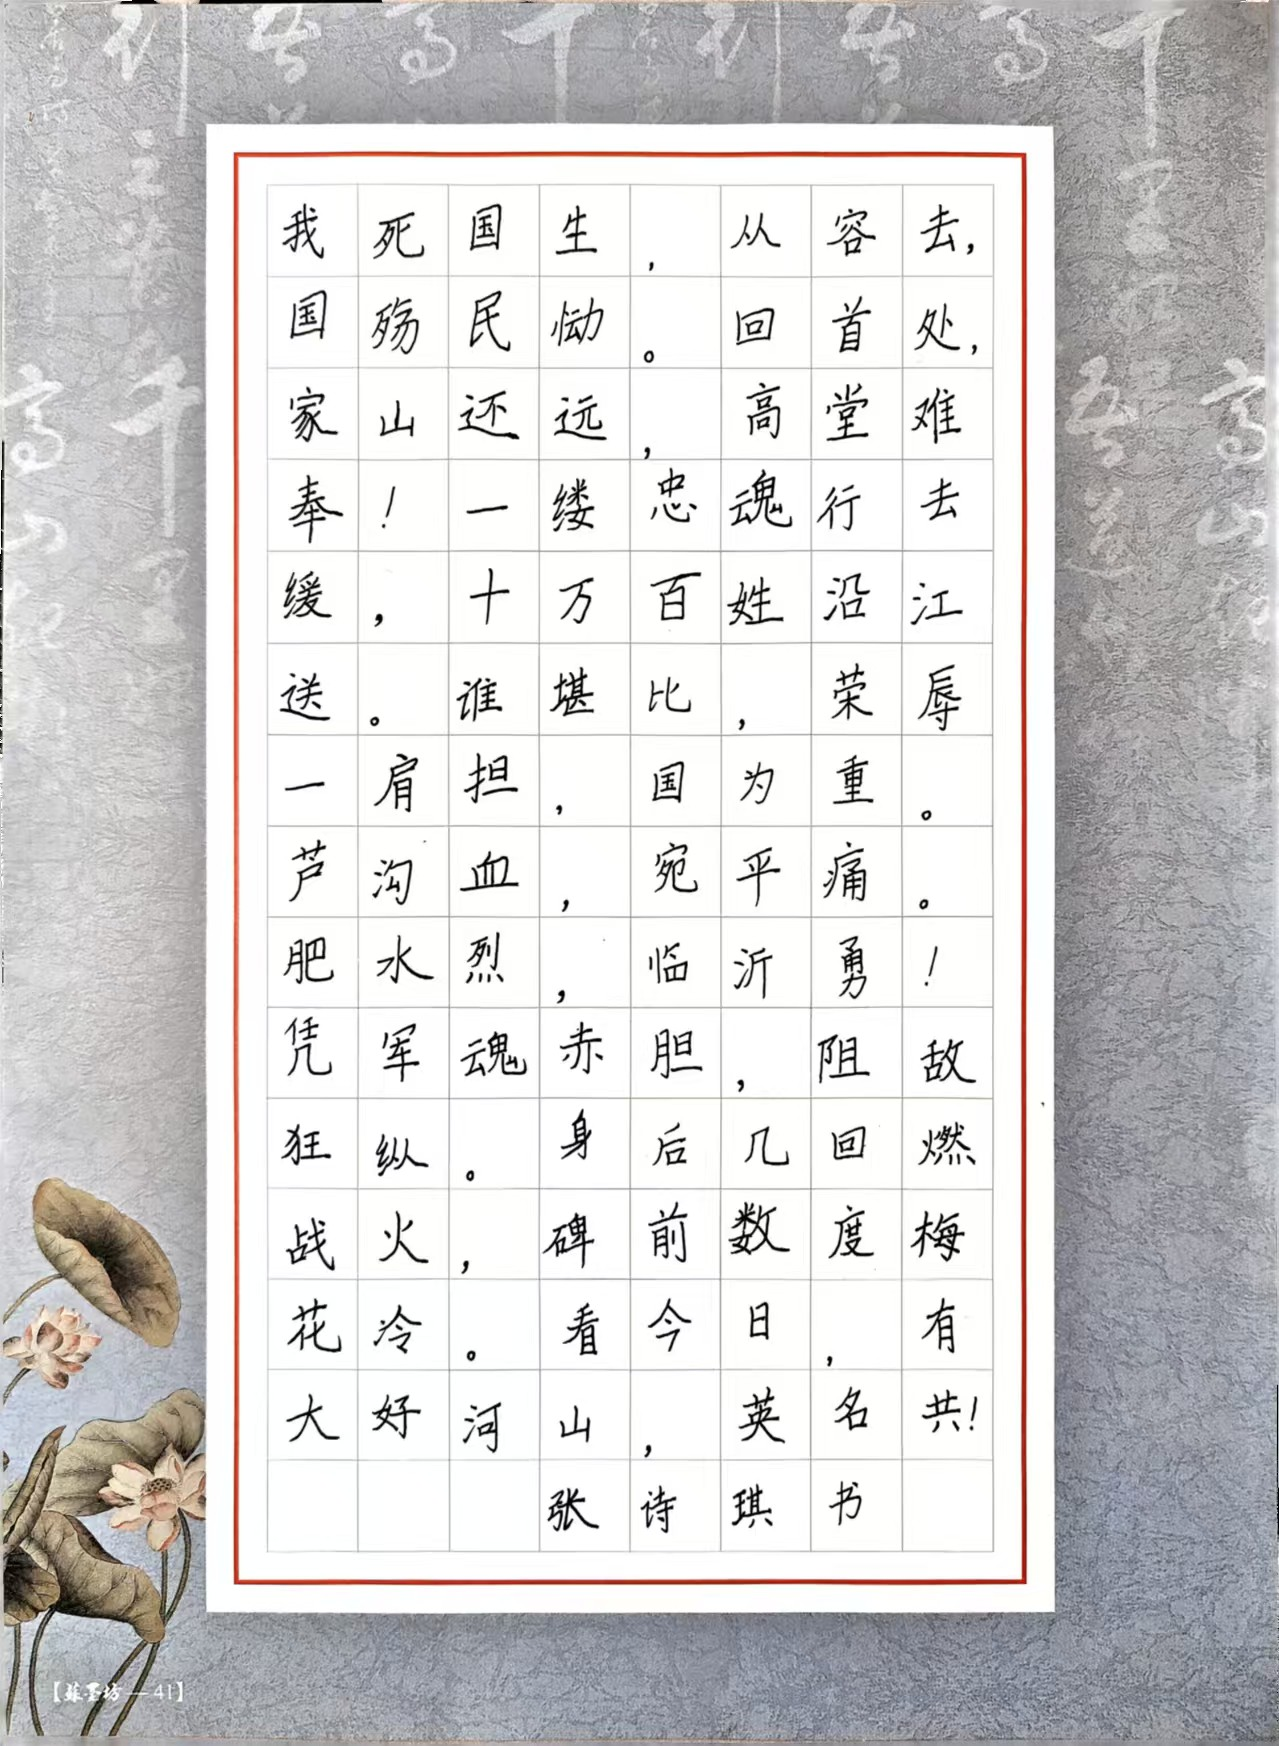 我死国生，从容去，
国殇民恸。回首处，
家山还远，高堂难
奉！一缕忠魂行去
缓，十万百姓沿江
送。谁堪比，荣辱
一肩担，国为重。
芦沟血，宛平痛。
肥水烈，临沂勇！
凭军魂赤胆，阻敌
狂纵。身后几回燃
战火，碑前数度梅
花冷。看今日，有
大好河山，英名共！
张诗琪书
【蘇墨坊—41】